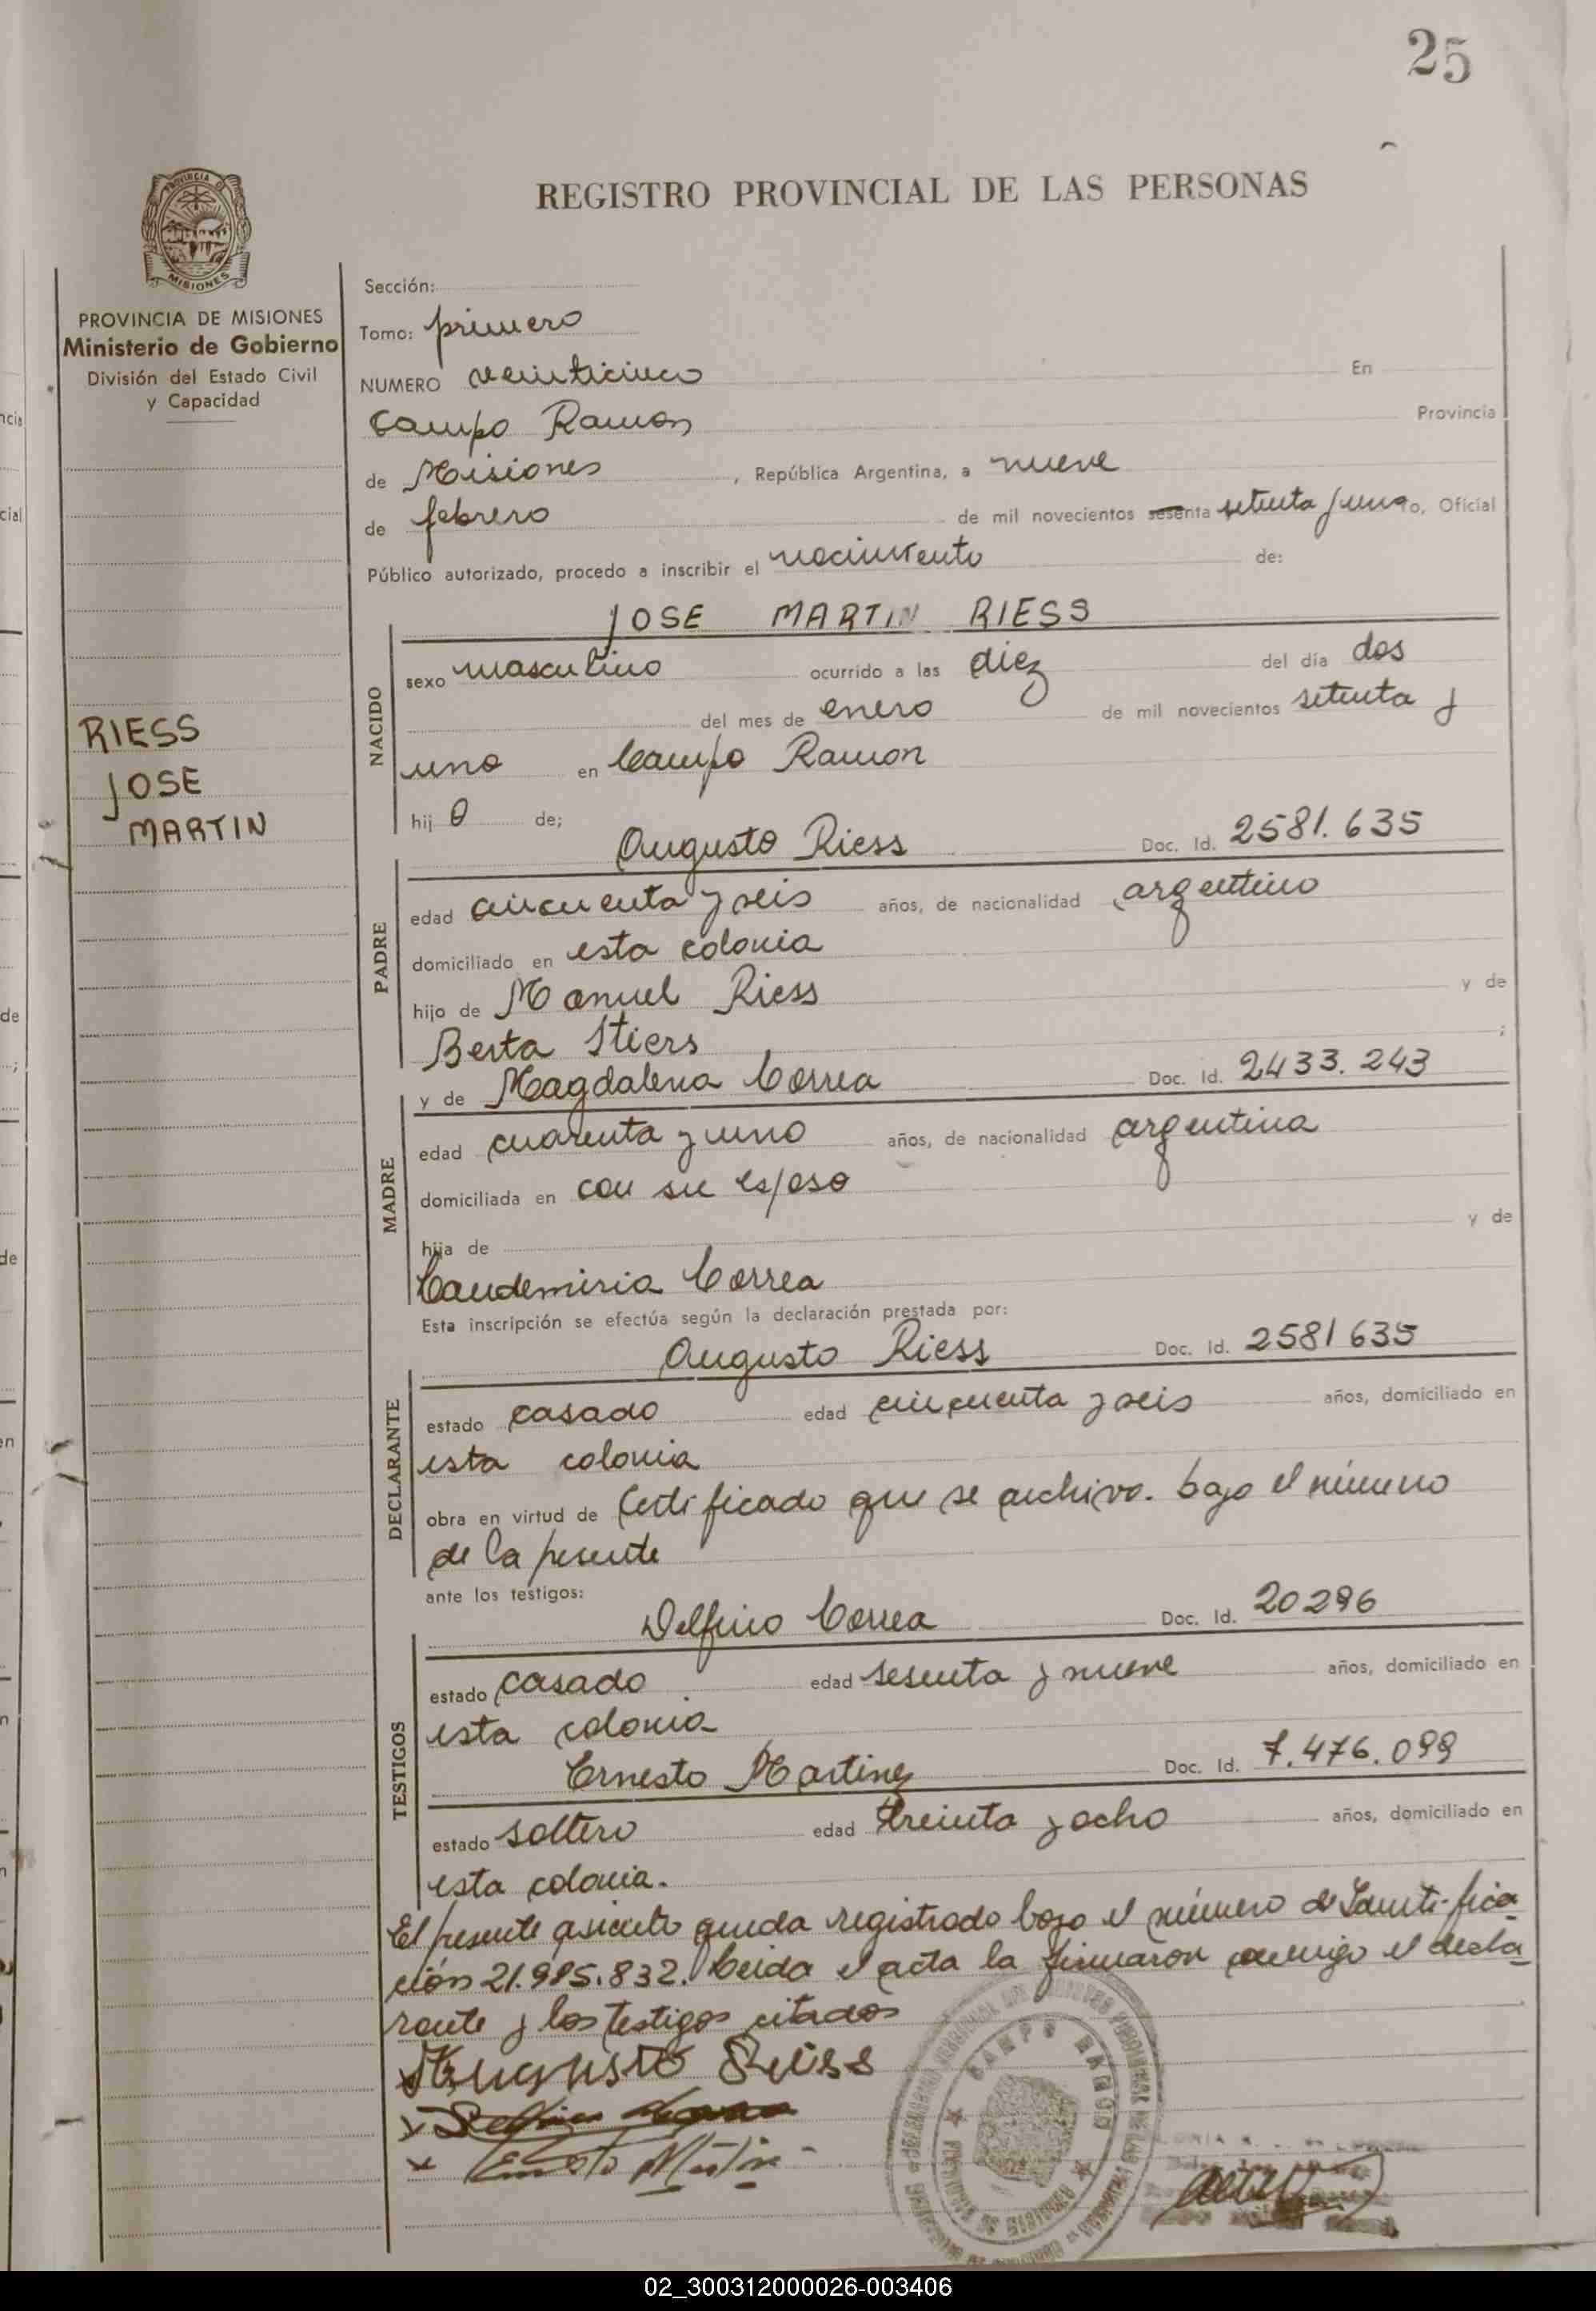 25
REGISTRO PROVINCIAL DE LAS PERSONAS
PROVINCIA
MISIONES
PROVINCIA DE MISIONES
Ministerio de Gobierno
División del Estado Civil
y Capacidad
RIESS
JOSE
MARTIN
Sección:
Tomo: primero
NUMERO veinticinco En
Campo Ramon Provincia
de Misiones , República Argentina, a nueve
de febrero de mil novecientos sesenta setenta y uno, Oficial
Público autorizado, procedo a inscribir el nacimiento de:
JOSE MARTIN RIESS
NACIDO
sexo masculino ocurrido a las diez del día dos
del mes de enero de mil novecientos setenta y
uno en Campo Ramon
hij o de;
Augusto Riess Doc. Id. 2581.635
PADRE
edad cincuenta y seis años, de nacionalidad argentino
domiciliado en esta colonia
hijo de Manuel Riess y de
Berta Stiers ;
y de Magdalena Correa Doc. Id. 2433.243
MADRE
edad cuarenta y uno años, de nacionalidad argentina
domiciliada en con su esposo
hija de y de
Caudemiria Correa
Esta inscripción se efectúa según la declaración prestada por:
Augusto Riess Doc. Id. 2581635
DECLARANTE
estado casado edad cincuenta y seis años, domiciliado en
esta colonia
obra en virtud de Certificado que se archiva. bajo el número
de la presente
ante los testigos:
Delfino Correa Doc. Id. 20296
TESTIGOS
estado casado edad sesenta y nueve años, domiciliado en
esta colonia
Ernesto Martinez Doc. Id. 7.476.099
estado soltero edad treinta y ocho años, domiciliado en
esta colonia.
El presente asiento queda registrado bajo el número de Identifica
ción 21.985.832. Leida el acta la firmaron conmigo el decla
rante y los testigos citados
Augusto Reiss
CAMPO RAMON
02_300312000026-003406